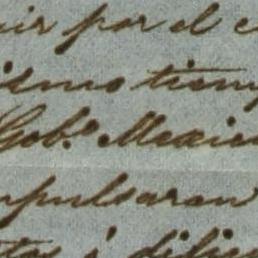 uir por el c
ismo tiemp
Gob.º Mexica
mpulsaron
tos i dilig